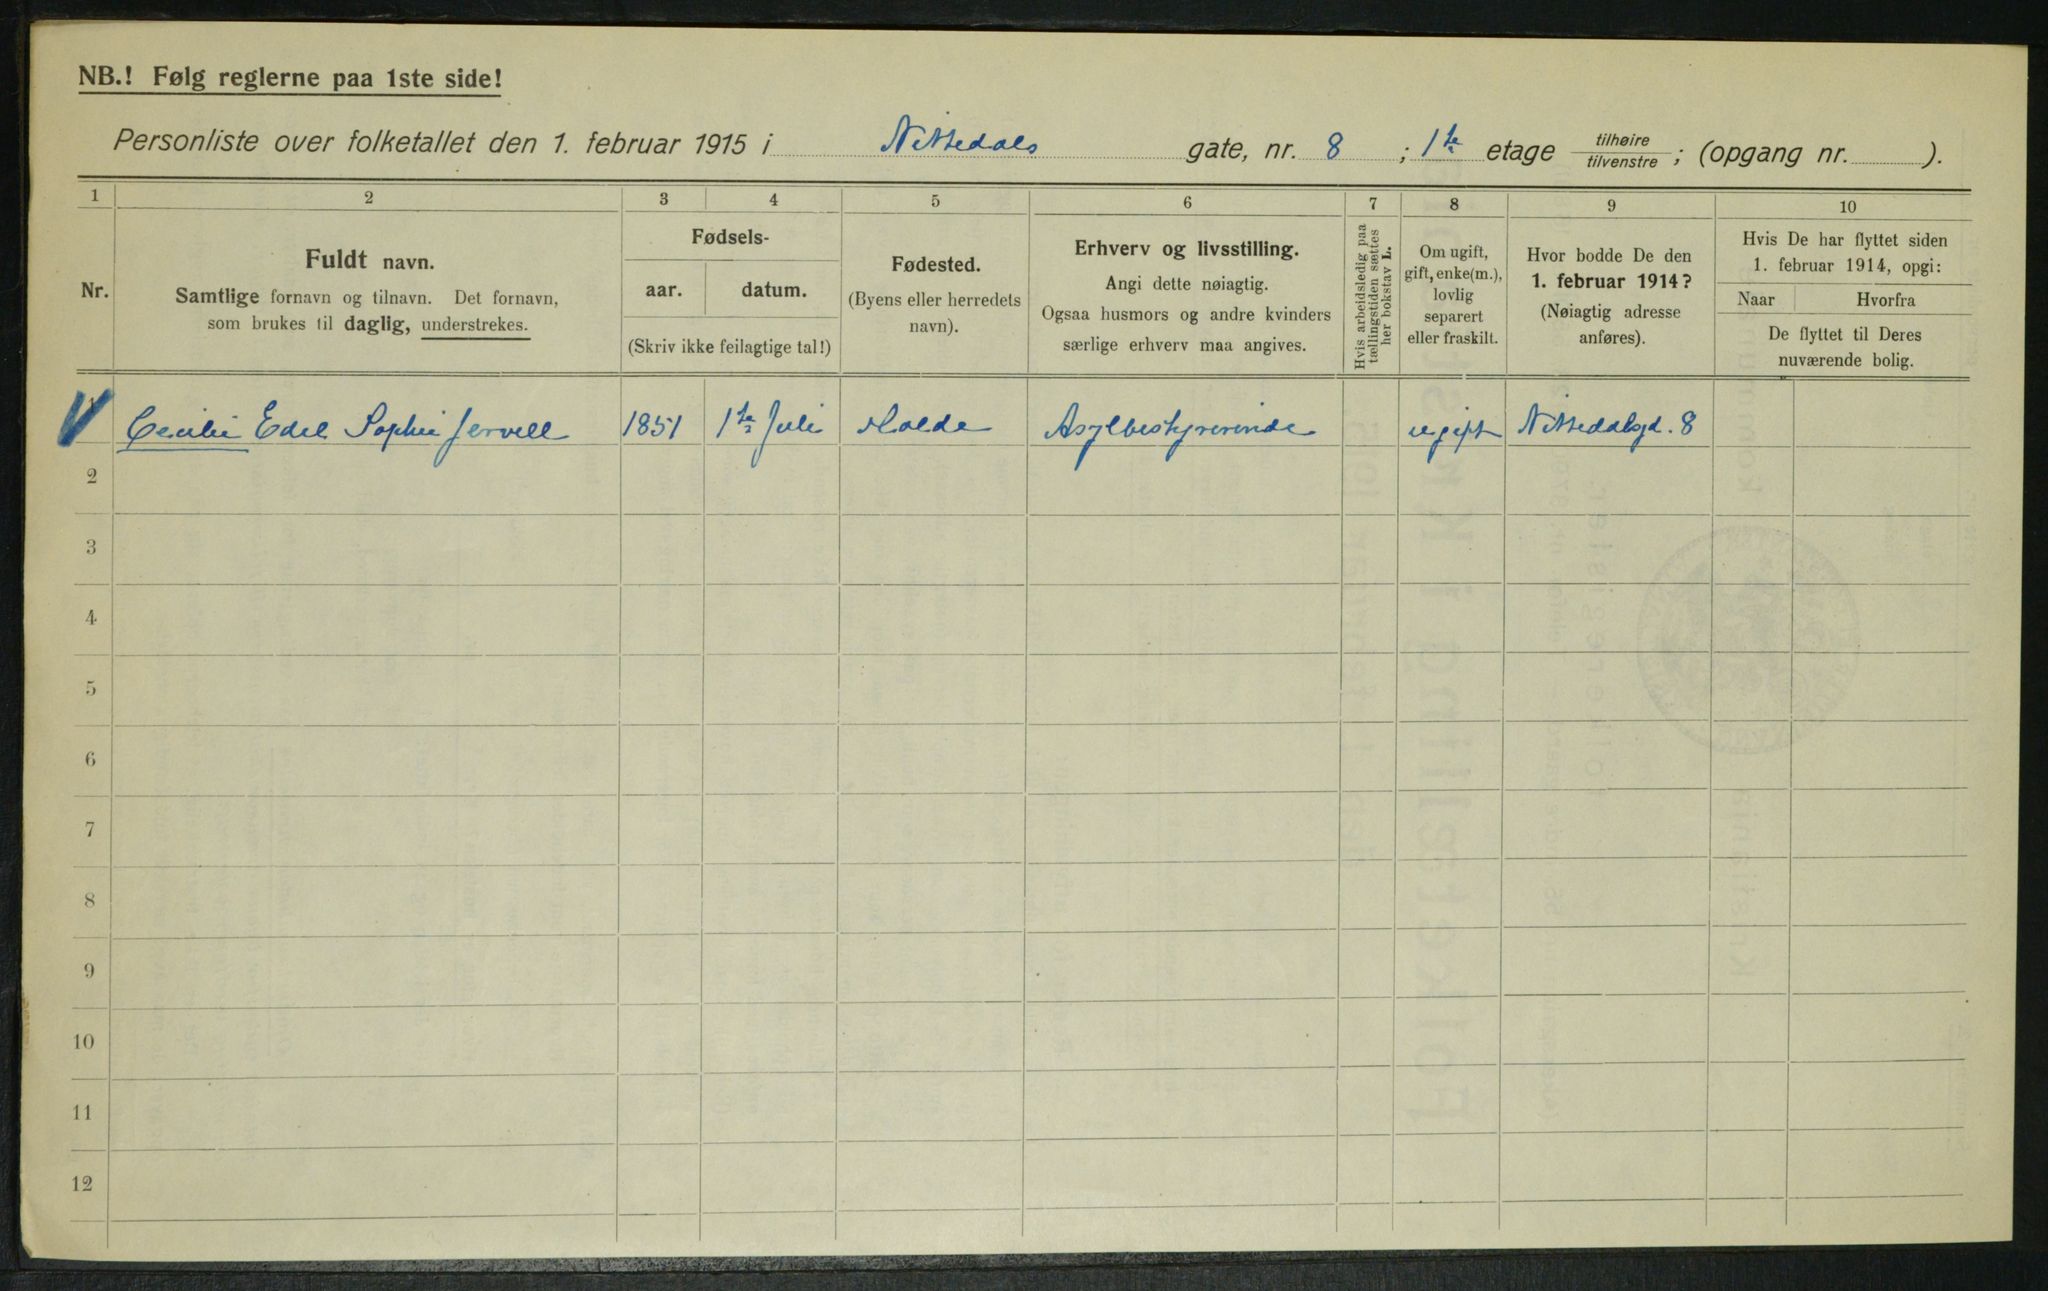 NB.! Følg reglerne paa 1ste side!
Personliste over folketallet den 1. februar 1915 i Nittedals gate, nr. 8 ; 1te etage tilhøire / tilvenstre ; (opgang nr. ).
1 2 3 4 5 6 7 8 9 10
Nr.
Fuldt navn.
Samtlige fornavn og tilnavn. Det fornavn,
som brukes til daglig, understrekes.
Fødsels-
aar. datum.
(Skriv ikke feilagtige tal!)
Fødested.
(Byens eller herredets
navn).
Erhverv og livsstilling.
Angi dette nøiagtig.
Ogsaa husmors og andre kvinders
særlige erhverv maa angives.
Hvis arbeidsledig paa
tællingstiden sættes
her bokstav L.
Om ugift,
gift, enke(m.),
lovlig
separert
eller fraskilt.
Hvor bodde De den
1. februar 1914?
(Nøiagtig adresse
anføres).
Hvis De har flyttet siden
1. februar 1914, opgi:
Naar Hvorfra
De flyttet til Deres
nuværende bolig.
1 Cecilie Edel Sophie Jervell 1851 1te Juli Molde Asylbestyrerinde ugift Nittedalsgd. 8
2
3
4
5
6
7
8
9
10
11
12